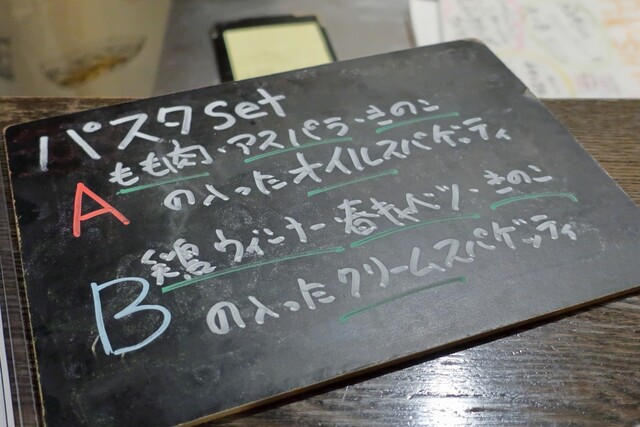 パスタset
A もも肉・アスパラ・きのこ
の入ったオイルスパゲッティ
B 粗挽ウィンナー・春キャベツ・きのこ
の入ったクリームスパゲッティ